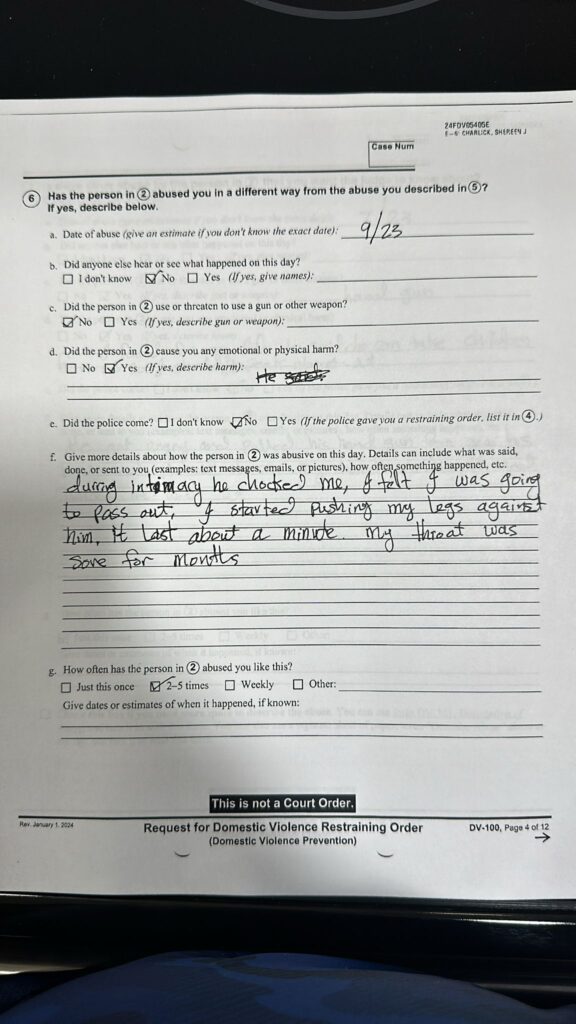 24FDV05405E
F-6 CHARLICK, SHEREEN J
Case Num
6 Has the person in ② abused you in a different way from the abuse you described in ⑤?
If yes, describe below.
a. Date of abuse (give an estimate if you don't know the exact date): 9/23
b. Did anyone else hear or see what happened on this day?
☐ I don't know ☑ No ☐ Yes (If yes, give names):
c. Did the person in ② use or threaten to use a gun or other weapon?
☑ No ☐ Yes (If yes, describe gun or weapon):
d. Did the person in ② cause you any emotional or physical harm?
☐ No ☑ Yes (If yes, describe harm):
He
e. Did the police come? ☐ I don't know ☑ No ☐ Yes (If the police gave you a restraining order, list it in ④.)
f. Give more details about how the person in ② was abusive on this day. Details can include what was said,
done, or sent to you (examples: text messages, emails, or pictures), how often something happened, etc.
during intimacy he chocked me, I felt I was going
to pass out, I started pushing my legs against
him, It last about a minute. My throat was
sore for months
g. How often has the person in ② abused you like this?
☐ Just this once ☑ 2-5 times ☐ Weekly ☐ Other:
Give dates or estimates of when it happened, if known:
This is not a Court Order.
Rev. January 1, 2024
Request for Domestic Violence Restraining Order
(Domestic Violence Prevention)
DV-100, Page 4 of 12
→